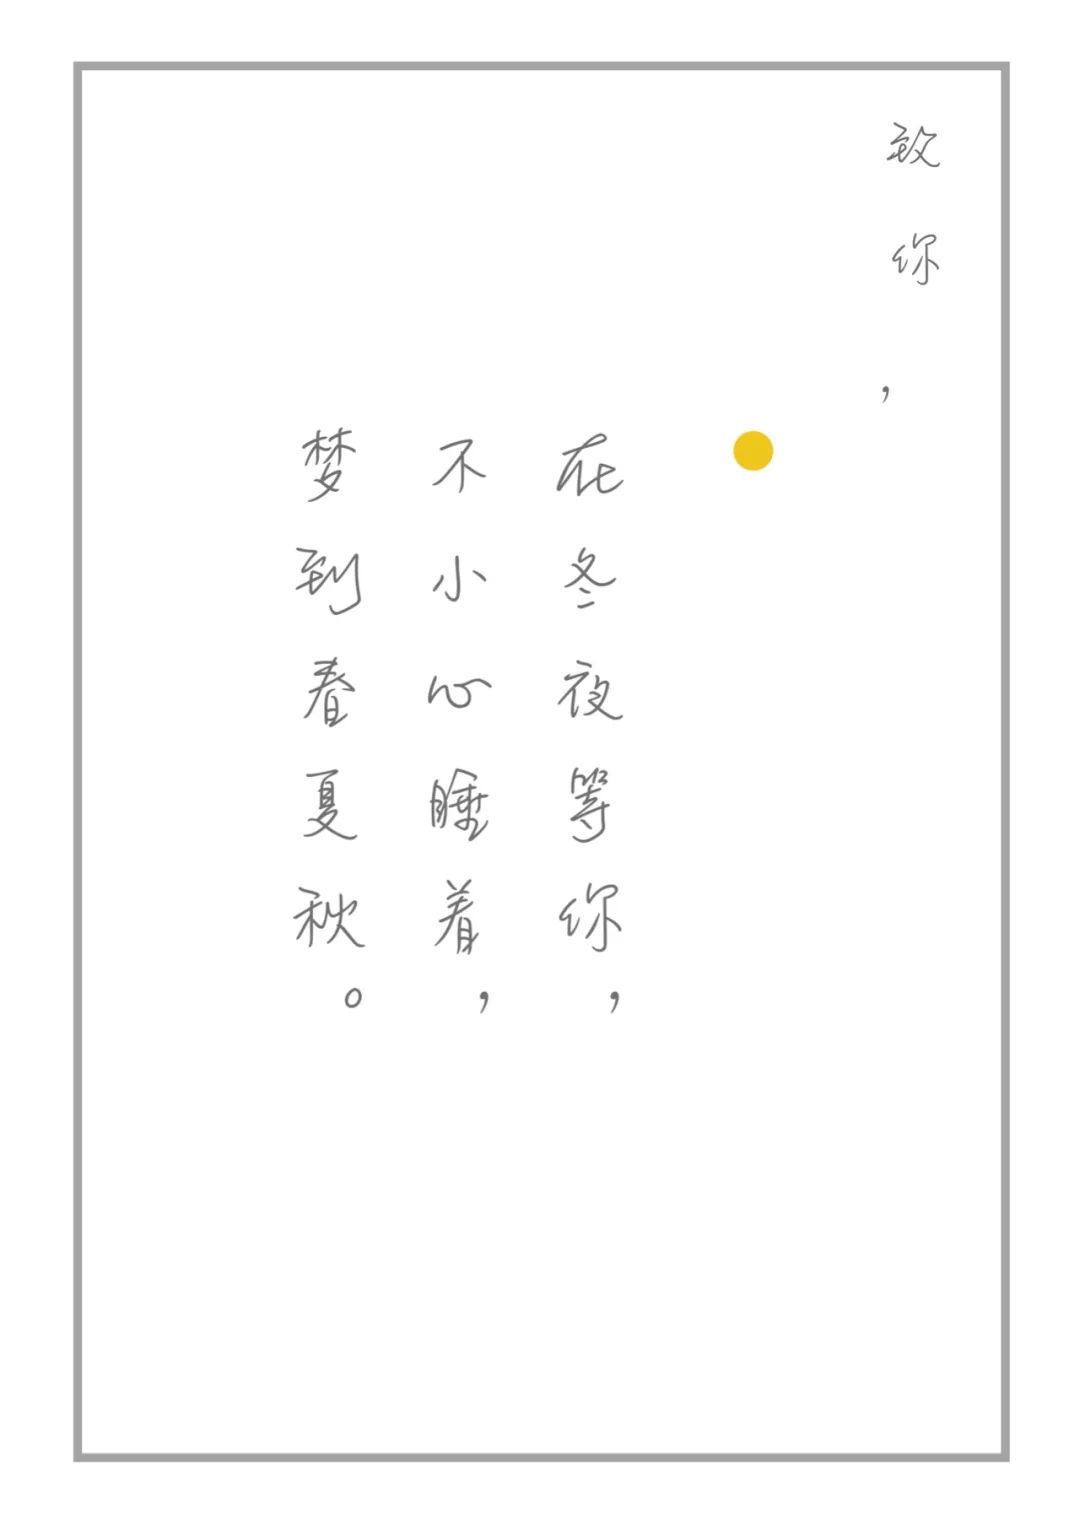 致你，
在冬夜等你，
不小心睡着，
梦到春夏秋。